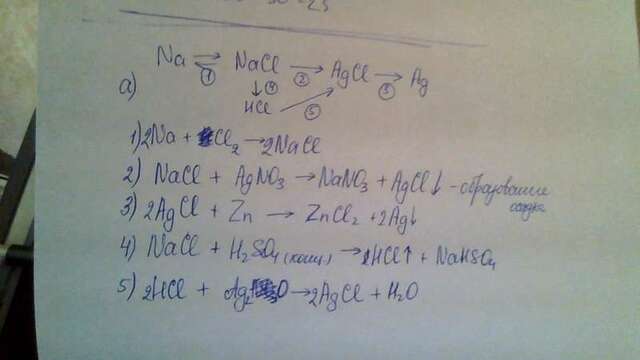 Na ⇄ NaCl → AgCl → Ag
① ② ③
а)
↓ ④
HCl ⑤
1) 2Na + Cl₂ → 2NaCl
2) NaCl + AgNO₃ → NaNO₃ + AgCl↓ - образование осадка
3) 2AgCl + Zn → ZnCl₂ + 2Ag↓
4) NaCl + H₂SO₄ (конц) → HCl↑ + NaHSO₄
5) 2HCl + Ag₂O → 2AgCl + H₂O